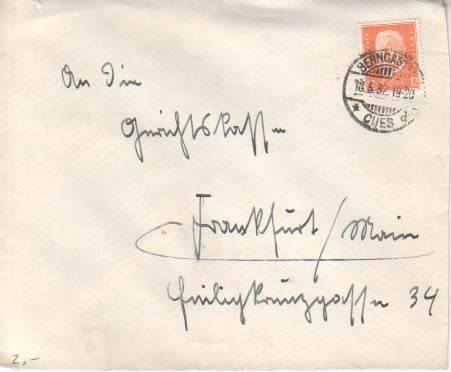 BERNCASTEL
18.5.32.19-20
* CUES d
An die
Gerichtskasse
Frankfurt/Main
Heiligkreuzgasse 34
2,-